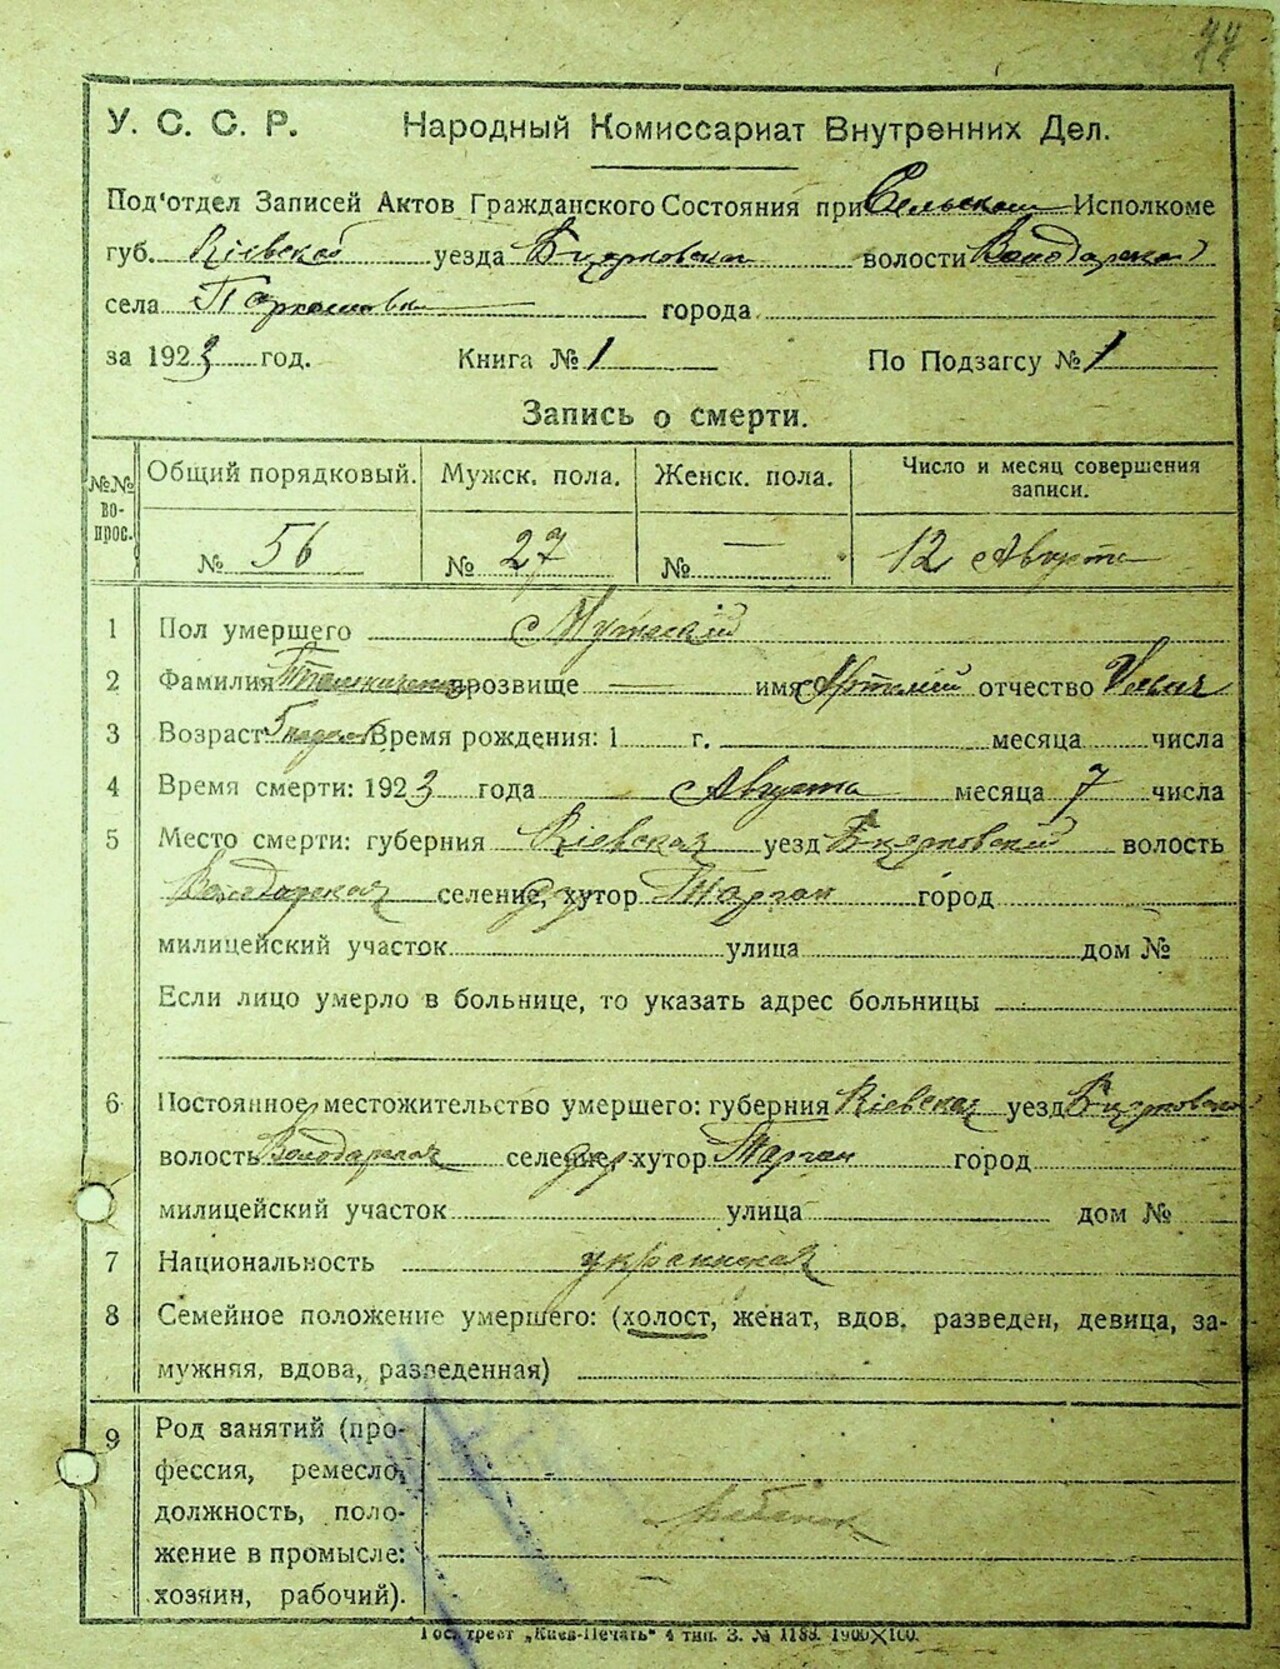 У. С. С. Р. Народный Комиссариат Внутренних Дел.
Под'отдел Записей Актов Гражданского Состояния при Сельском Исполкоме
губ. Кіевской уезда Бцерковскаго волости Володарской
села города
за 1923 год. Книга № 1 По Подзагсу № 1
Запись о смерти.
№№ во-прос. Общий порядковый. Мужск. пола. Женск. пола. Число и месяц совершения записи.
№ 56 № 27 № — 12 Августа
1 Пол умершего Мужской
2 Фамилия прозвище — имя Артемий отчество
3 Возраст 5 Время рождения: 1 г. месяца числа
4 Время смерти: 1923 года Августа месяца 7 числа
5 Место смерти: губерния Кіевская уезд Бцерковский волость
Володарская селение, хутор Тарган город
милицейский участок улица дом №
Если лицо умерло в больнице, то указать адрес больницы
6 Постоянное местожительство умершего: губерния Кіевская уезд Бцерковский
волость Володарская селение, хутор Тарган город
милицейский участок улица дом №
7 Национальность украинская
8 Семейное положение умершего: (холост, женат, вдов, разведен, девица, за-
мужняя, вдова, разведенная)
9 Род занятий (про-
фессия, ремесло,
должность, поло- ребенок
жение в промысле:
хозяин, рабочий).
Гос. трест „Киев-Печать" 4 тип. З. № 1183. 1900×100.